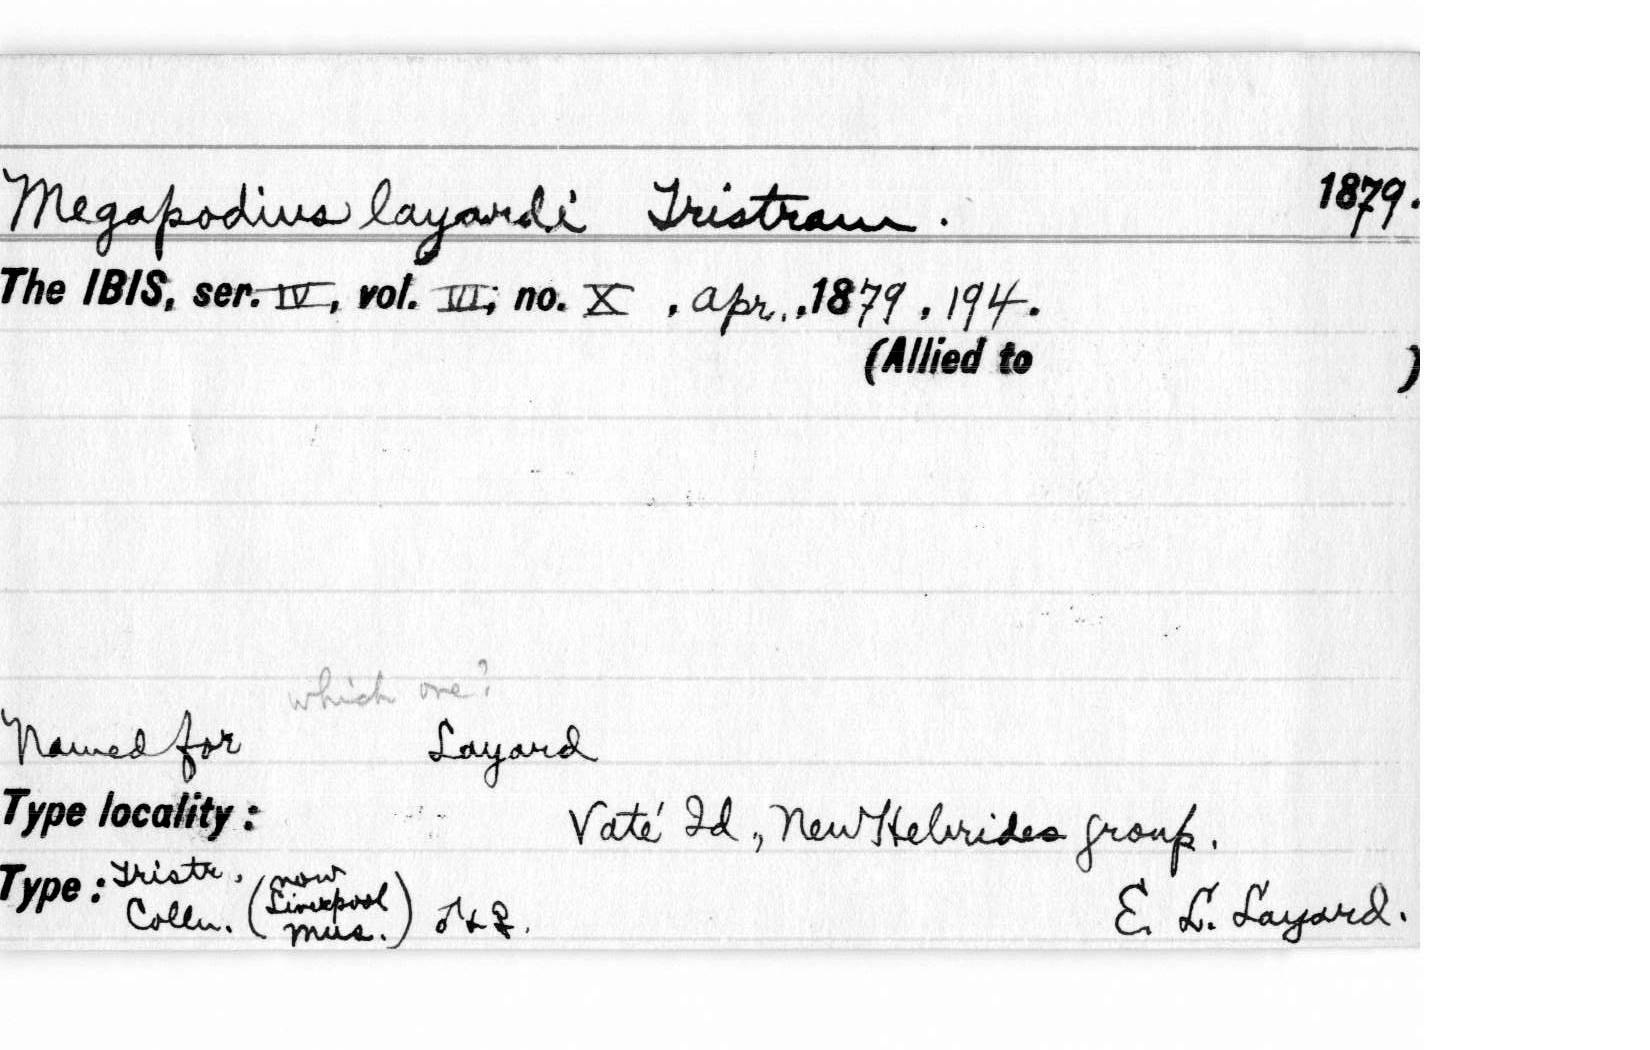 Megapodius layardi Tristram. 1879.
The IBIS, ser. IV, vol. III, no. X, Apr., 1879, 194.
(Allied to )
which one?
Named for Layard
Type locality: Vaté Id., New Hebrides group.
Type: Tristr. Colln. (now Liverpool Mus.) ♂ & ♀. E. L. Layard.